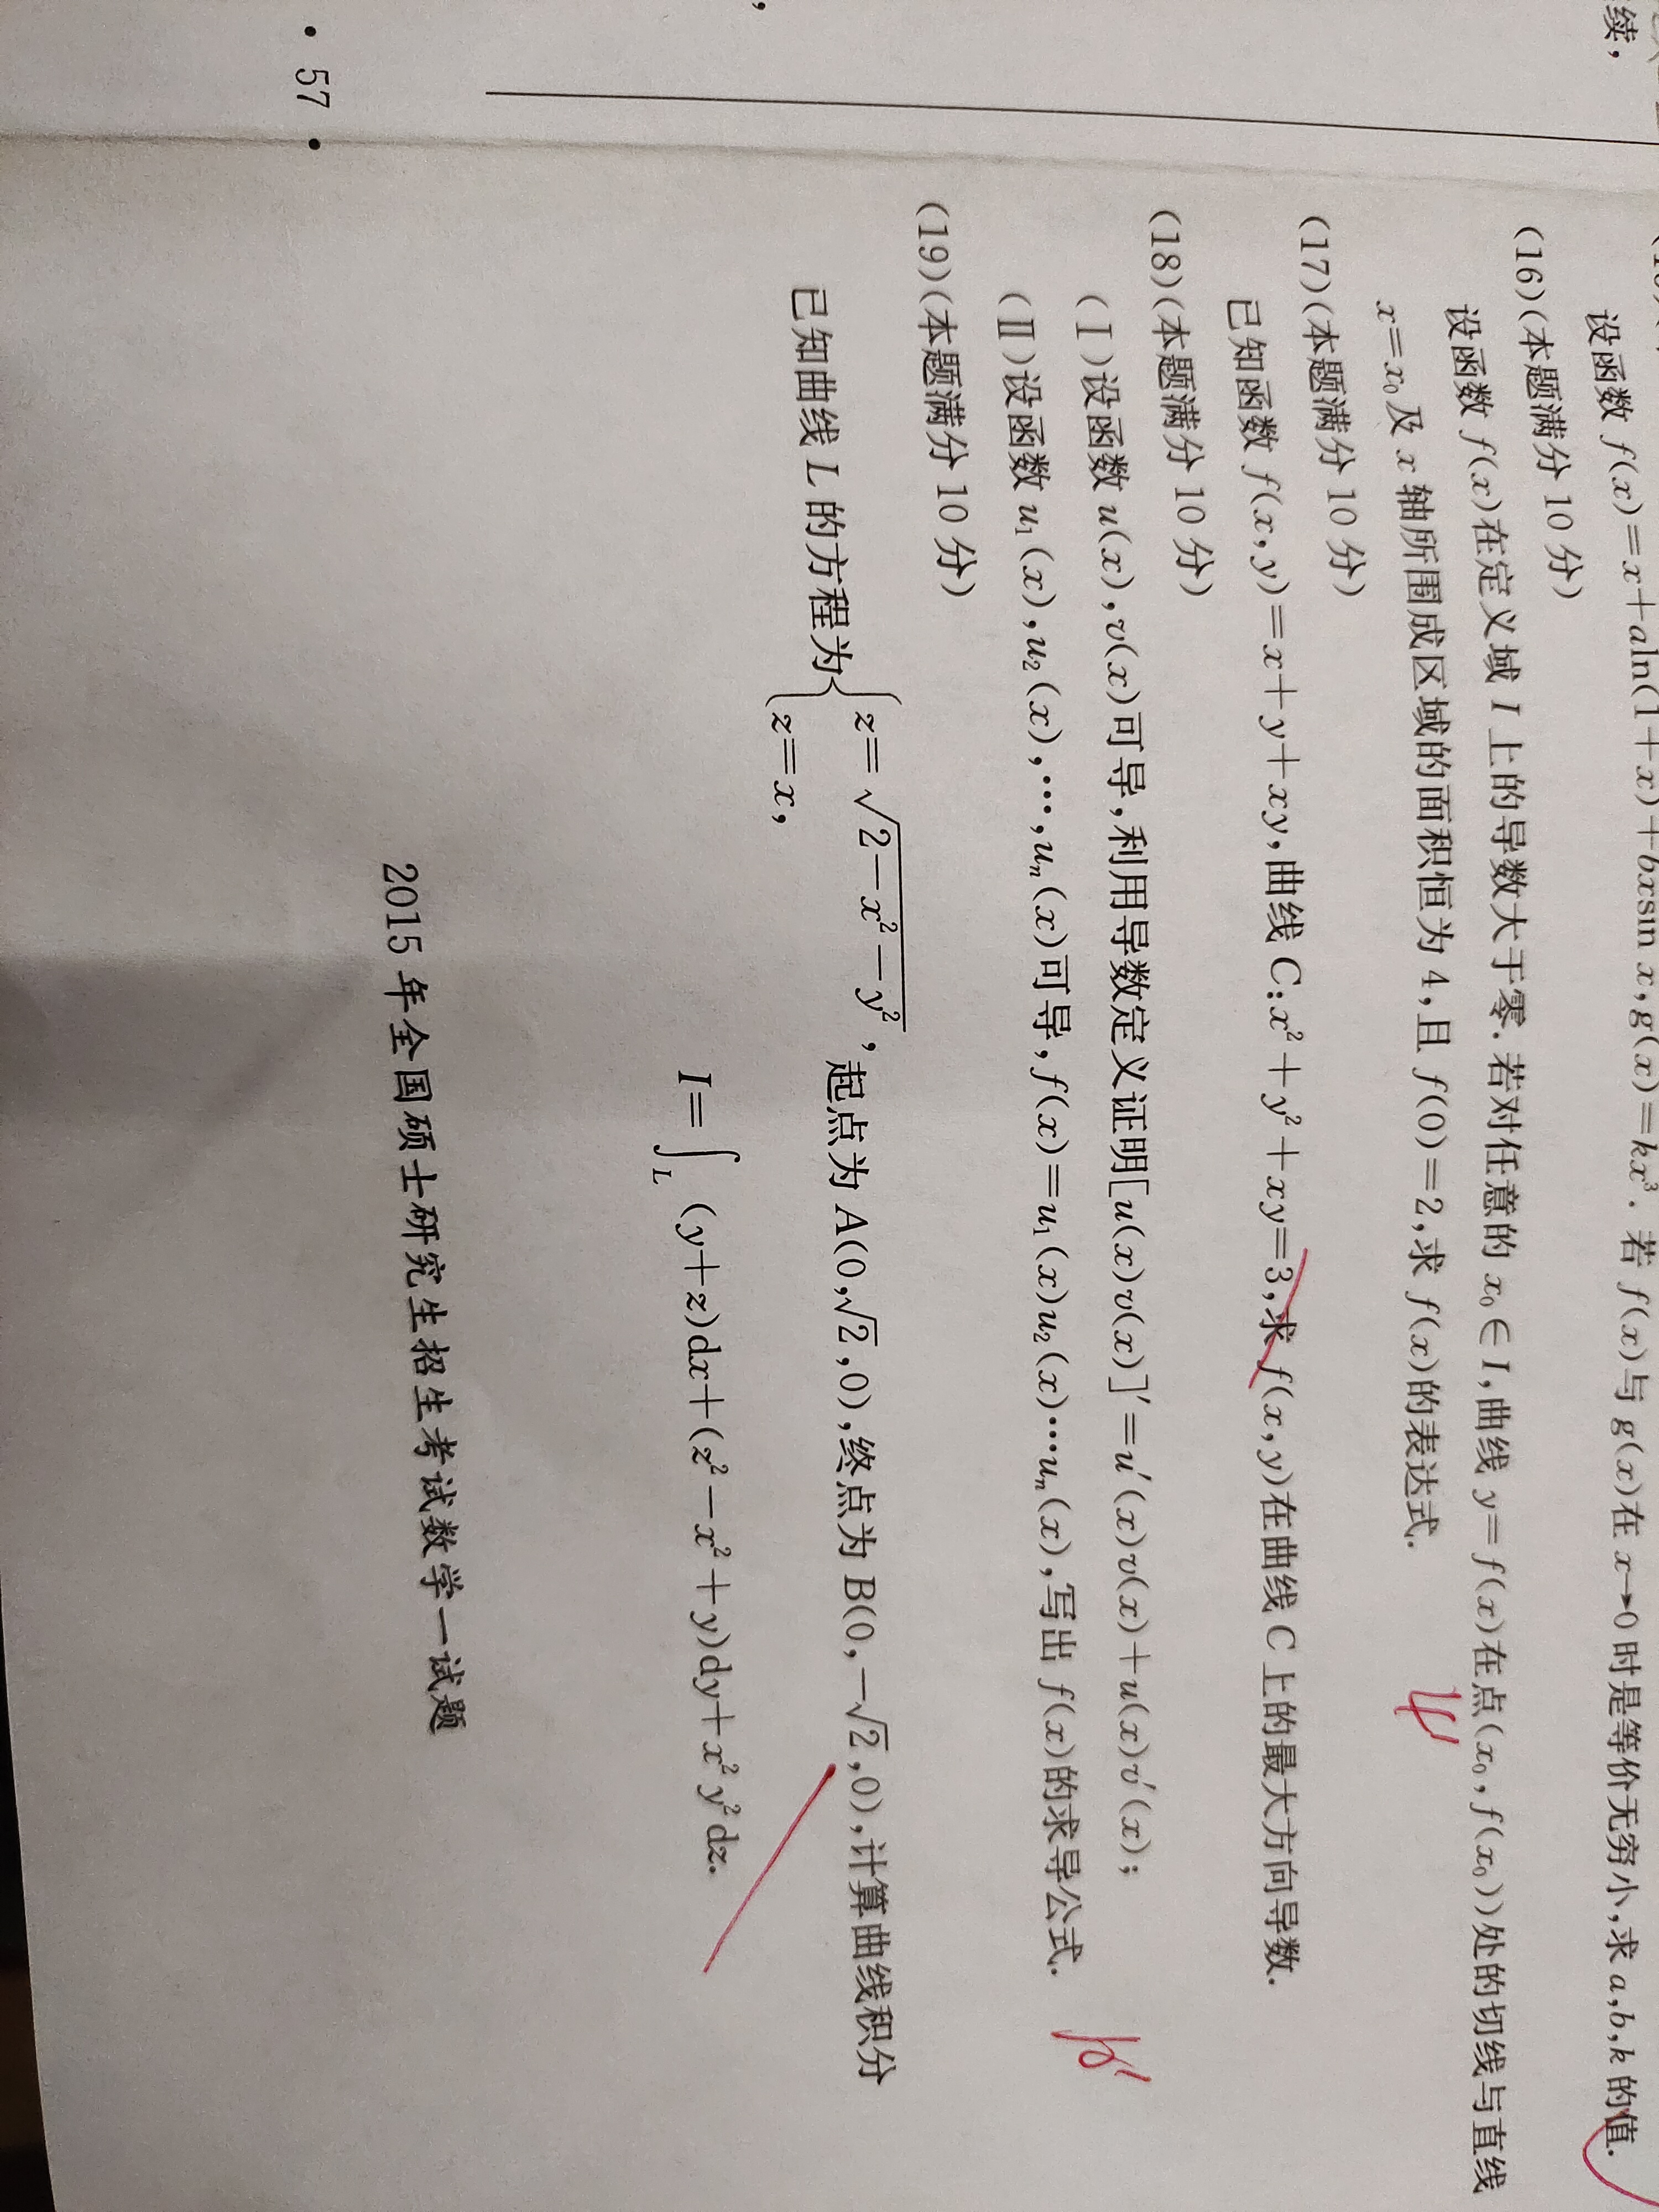 续,
设函数 f(x)=x+aln(1+x)+bxsin x,g(x)=kx³. 若 f(x)与 g(x)在 x→0 时是等价无穷小,求 a,b,k 的值.
(16)(本题满分 10 分)
设函数 f(x)在定义域 I 上的导数大于零. 若对任意的 x₀∈I,曲线 y=f(x)在点(x₀,f(x₀))处的切线与直线
x=x₀及 x 轴所围成区域的面积恒为 4,且 f(0)=2,求 f(x)的表达式.
(17)(本题满分 10 分)
已知函数 f(x,y)=x+y+xy,曲线 C:x²+y²+xy=3,求 f(x,y)在曲线 C 上的最大方向导数.
(18)(本题满分 10 分)
(Ⅰ)设函数 u(x),v(x)可导,利用导数定义证明[u(x)v(x)]′=u′(x)v(x)+u(x)v′(x);
(Ⅱ)设函数 u₁(x),u₂(x),⋯,uₙ(x)可导,f(x)=u₁(x)u₂(x)⋯uₙ(x),写出 f(x)的求导公式.
(19)(本题满分 10 分)
已知曲线 L 的方程为{z=√(2−x²−y²), z=x, 起点为 A(0,√2,0),终点为 B(0,−√2,0),计算曲线积分
I=∫_L (y+z)dx+(z²−x²+y)dy+x²y²dz.
2015 年全国硕士研究生招生考试数学一试题
· 57 ·